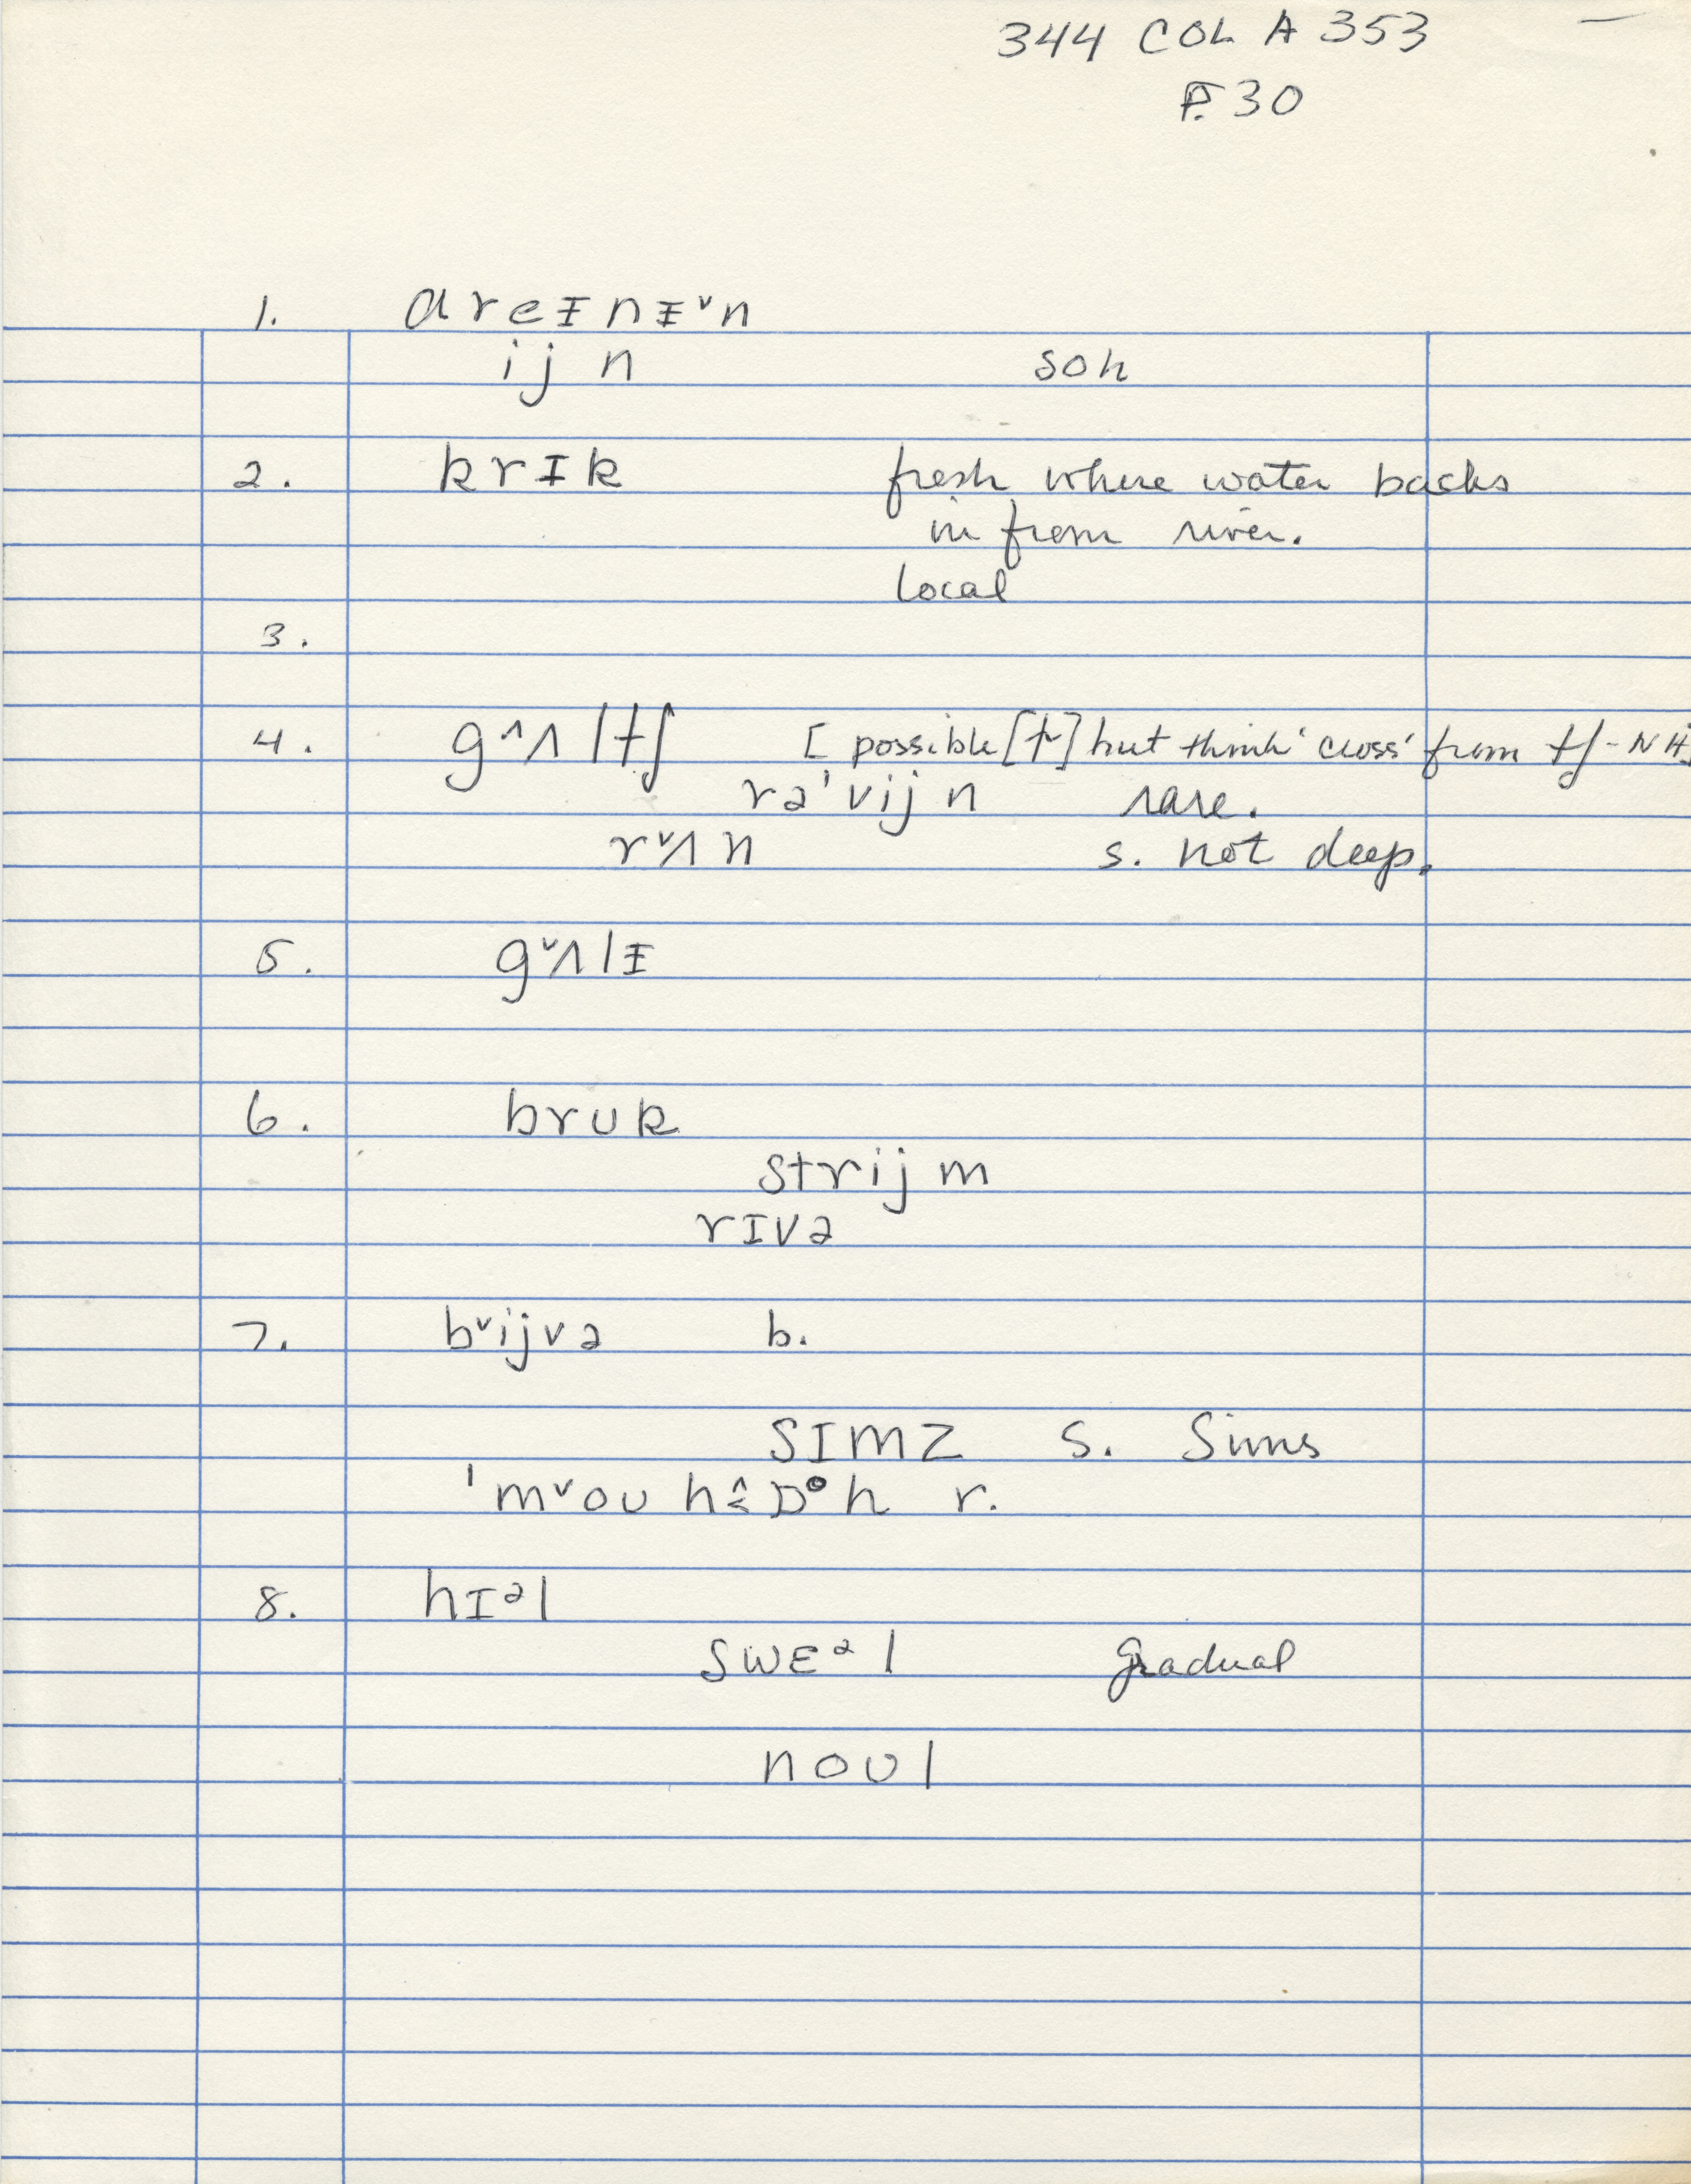 344 COL A 353
P. 30
1. dreᵻnᵻ˅n
ijn soh
2. krɪk fresh where water backs
in from river.
local
3.
4. g^ʌltʃ [possible [t] but think 'cross' from tʃ - NH]
rə'vijn rare.
r˅ʌn s. not deep.
5. g˅ʌlᵻ
6. brʊk
strijm
rɪvə
7. b˅ijvə b.
sɪmz s. Sims
'm˅oʊh r.
8. hɪᵊl
swɛᵊl gradual
noʊl